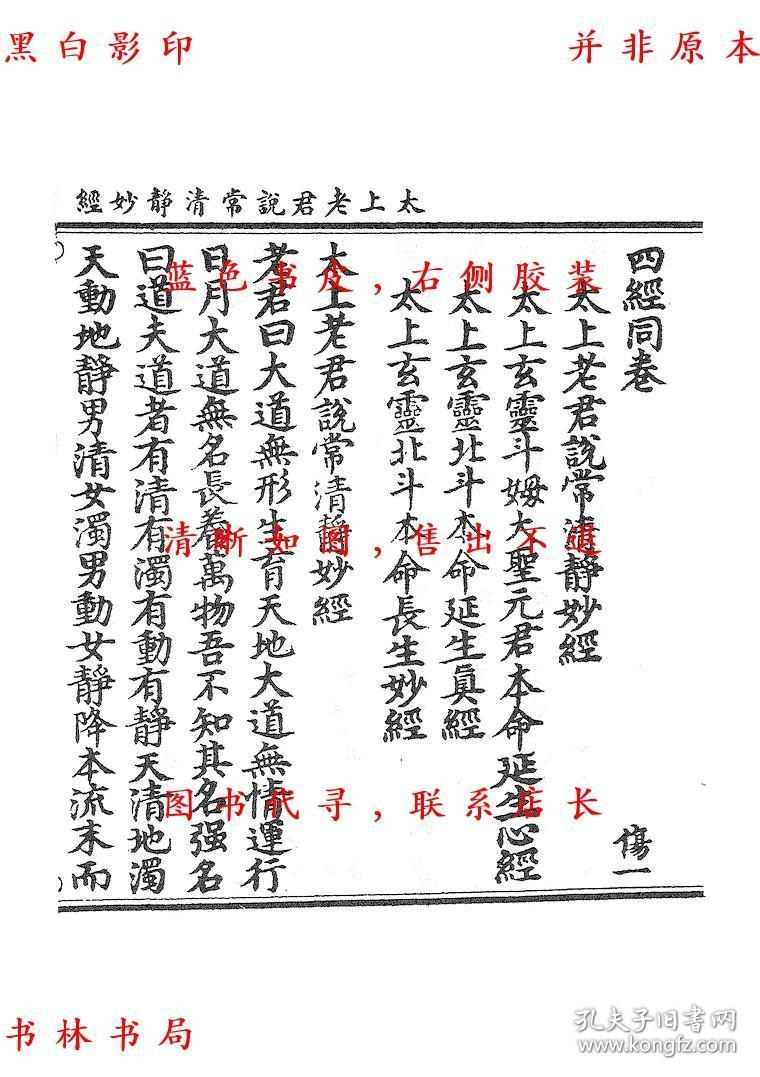 黑白影印
并非原本
太上老君說常清靜妙經
四經同卷
傷一
太上老君說常清靜妙經
太上玄靈斗姆大聖元君本命延生心經
太上玄靈北斗本命延生真經
太上玄靈北斗本命長生妙經
太上老君說常清靜妙經
老君曰大道無形生育天地大道無情運行
日月大道無名長養萬物吾不知其名强名
曰道夫道者有清有濁有動有靜天清地濁
天動地靜男清女濁男動女靜降本流末而
蓝色书皮，右侧胶装
清晰如图，售出不退
图书代寻，联系店长
书林书局
孔夫子旧书网
www.kongfz.com